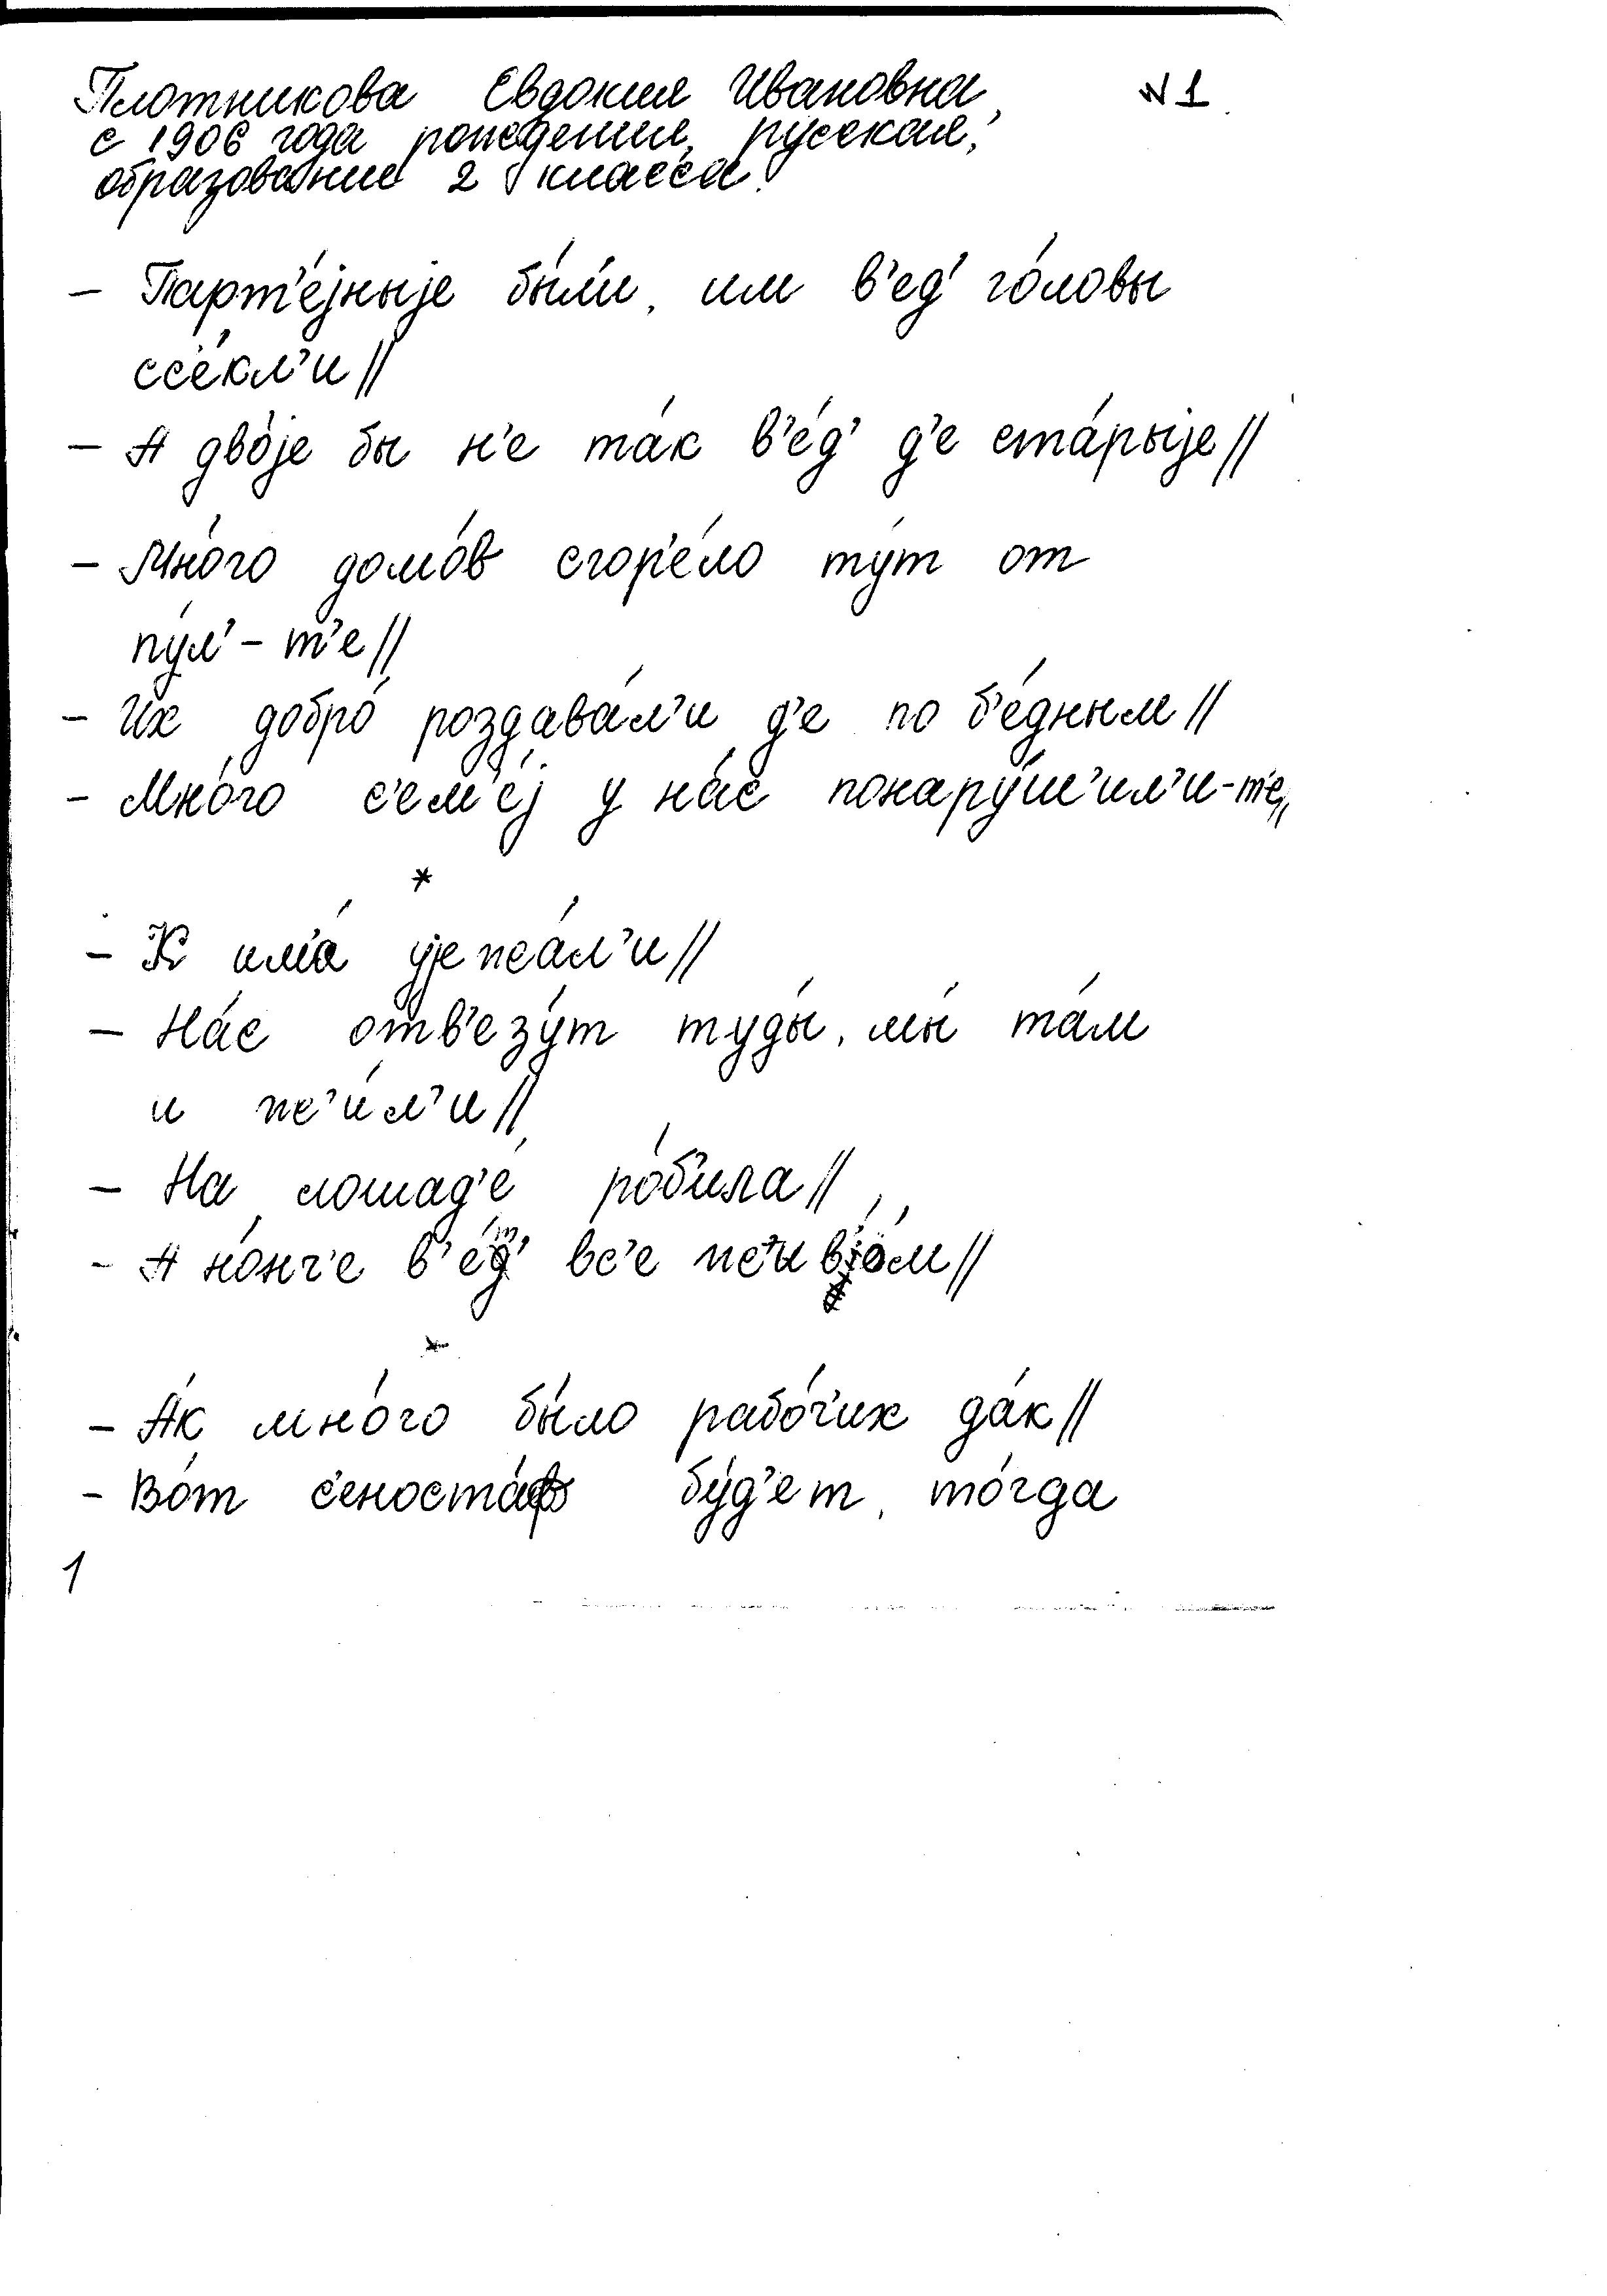 Плотникова Евдокия Ивановна, №1
с 1906 года рождения, русская,
образование 2 класса.
– Парт'е́jныjе бы́ли, им в'ед' го́ловы
сс'е́кл'и //
– А дво́jе бы н'е та́к в'е́д' д'е ста́рыjе //
– Мно́го домо́в сгор'е́ло ту́т от
пу́л' – т'е //
– Их добро́ роздава́л'и д'е по б'е́дным //
– Мно́го с'ем'е́j у на́с понару́ш'ил'и-т'е //
*
– К има́ уjежа́л'и //
– На́с отв'езу́т туды́, мы́ та́м
и ж'и́л'и //
– На лошад'е́ ро́б'ила //
– А но́нч'е в'е́т' вс'е жыв'о́м //
*
– А́к мно́го бы́ло рабо́ч'их да́к //
– Во́т с'еноста́ф бу́д'ет, то́гда
1